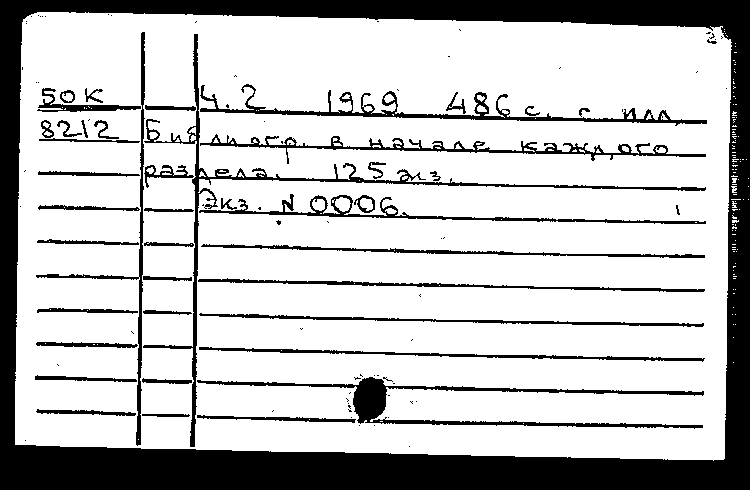 2
50К Ч.2. 1969. 486 с. с илл.
8212 Библиогр. в начале каждого
раздела. 125 экз.
Экз. N 0006.